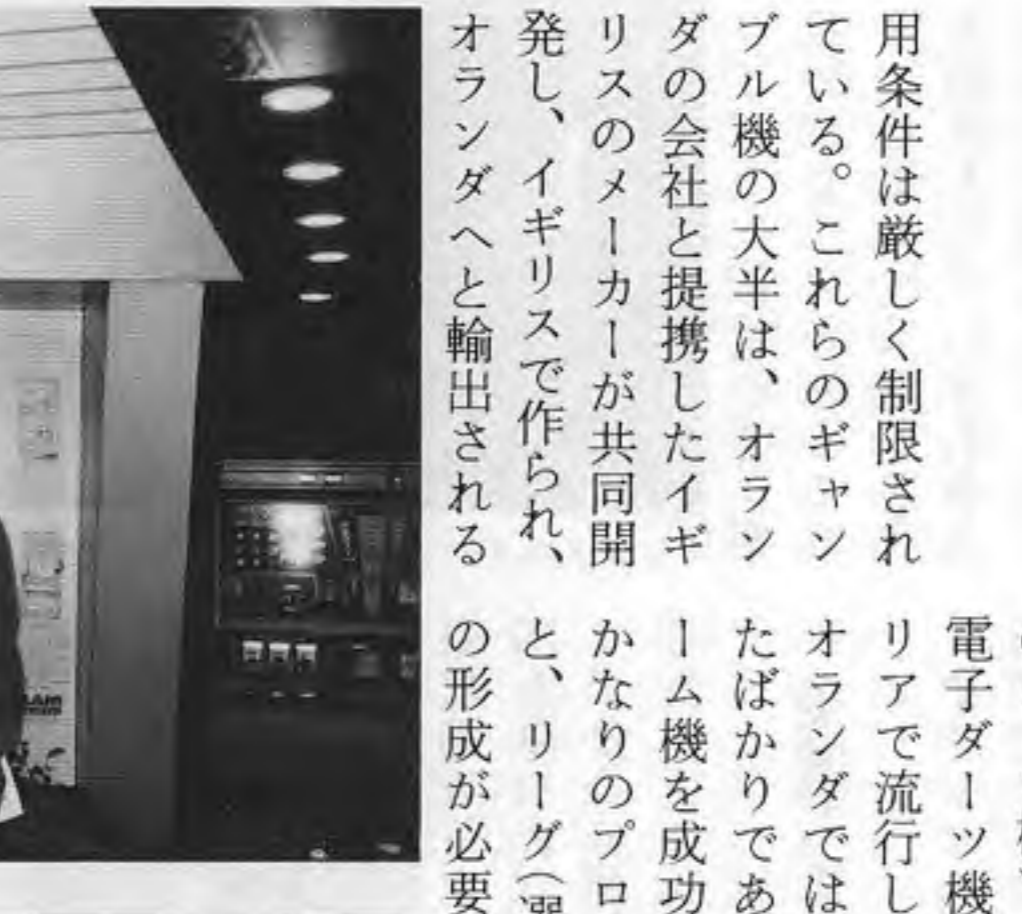 用条件は厳しく制限され
ている。これらのギャン
ブル機の大半は、オラン
ダの会社と提携したイギ
リスのメーカーが共同開
発し、イギリスで作られ、
オランダへと輸出される
電子ダーツ機
リアで流行し
オランダでは
たばかりであ
ーム機を成功
かなりのプロ
と、リーグ(選
の形成が必要